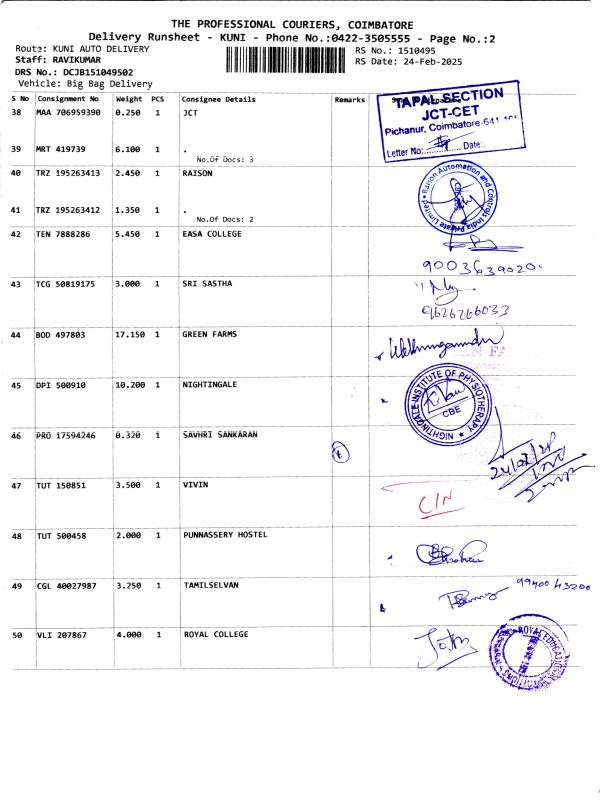 THE PROFESSIONAL COURIERS, COIMBATORE
Delivery Runsheet - KUNI - Phone No.:0422-3505555 - Page No.:2
Route: KUNI AUTO DELIVERY RS No.: 1510495
Staff: RAVIKUMAR RS Date: 24-Feb-2025
DRS No.: DCJB151049502
Vehicle: Big Bag Delivery
S No Consignment No Weight PCS Consignee Details Remarks
38 MAA 706959390 0.250 1 JCT
TAPAL SECTION
JCT-CET
Pichanur, Coimbatore-641
Letter No: Date:
39 MRT 419739 6.100 1 .
No.Of Docs: 3
40 TRZ 195263413 2.450 1 RAISON
Raison Automation and Controls India Private Limited
41 TRZ 195263412 1.350 1 .
No.Of Docs: 2
42 TEN 7888286 5.450 1 EASA COLLEGE
9003639020.
43 TCG 50819175 3.000 1 SRI SASTHA
9626266033
44 BOD 497803 17.150 1 GREEN FARMS
45 DPI 500910 10.200 1 NIGHTINGALE
NIGHTINGALE INSTITUTE OF PHYSIOTHERAPY
CBE
46 PRO 17594246 0.320 1 SAVHRI SANKARAN
47 TUT 150851 3.500 1 VIVIN
C/N
48 TUT 500458 2.000 1 PUNNASSERY HOSTEL
49 CGL 40027987 3.250 1 TAMILSELVAN
99400 43200
50 VLI 207867 4.000 1 ROYAL COLLEGE